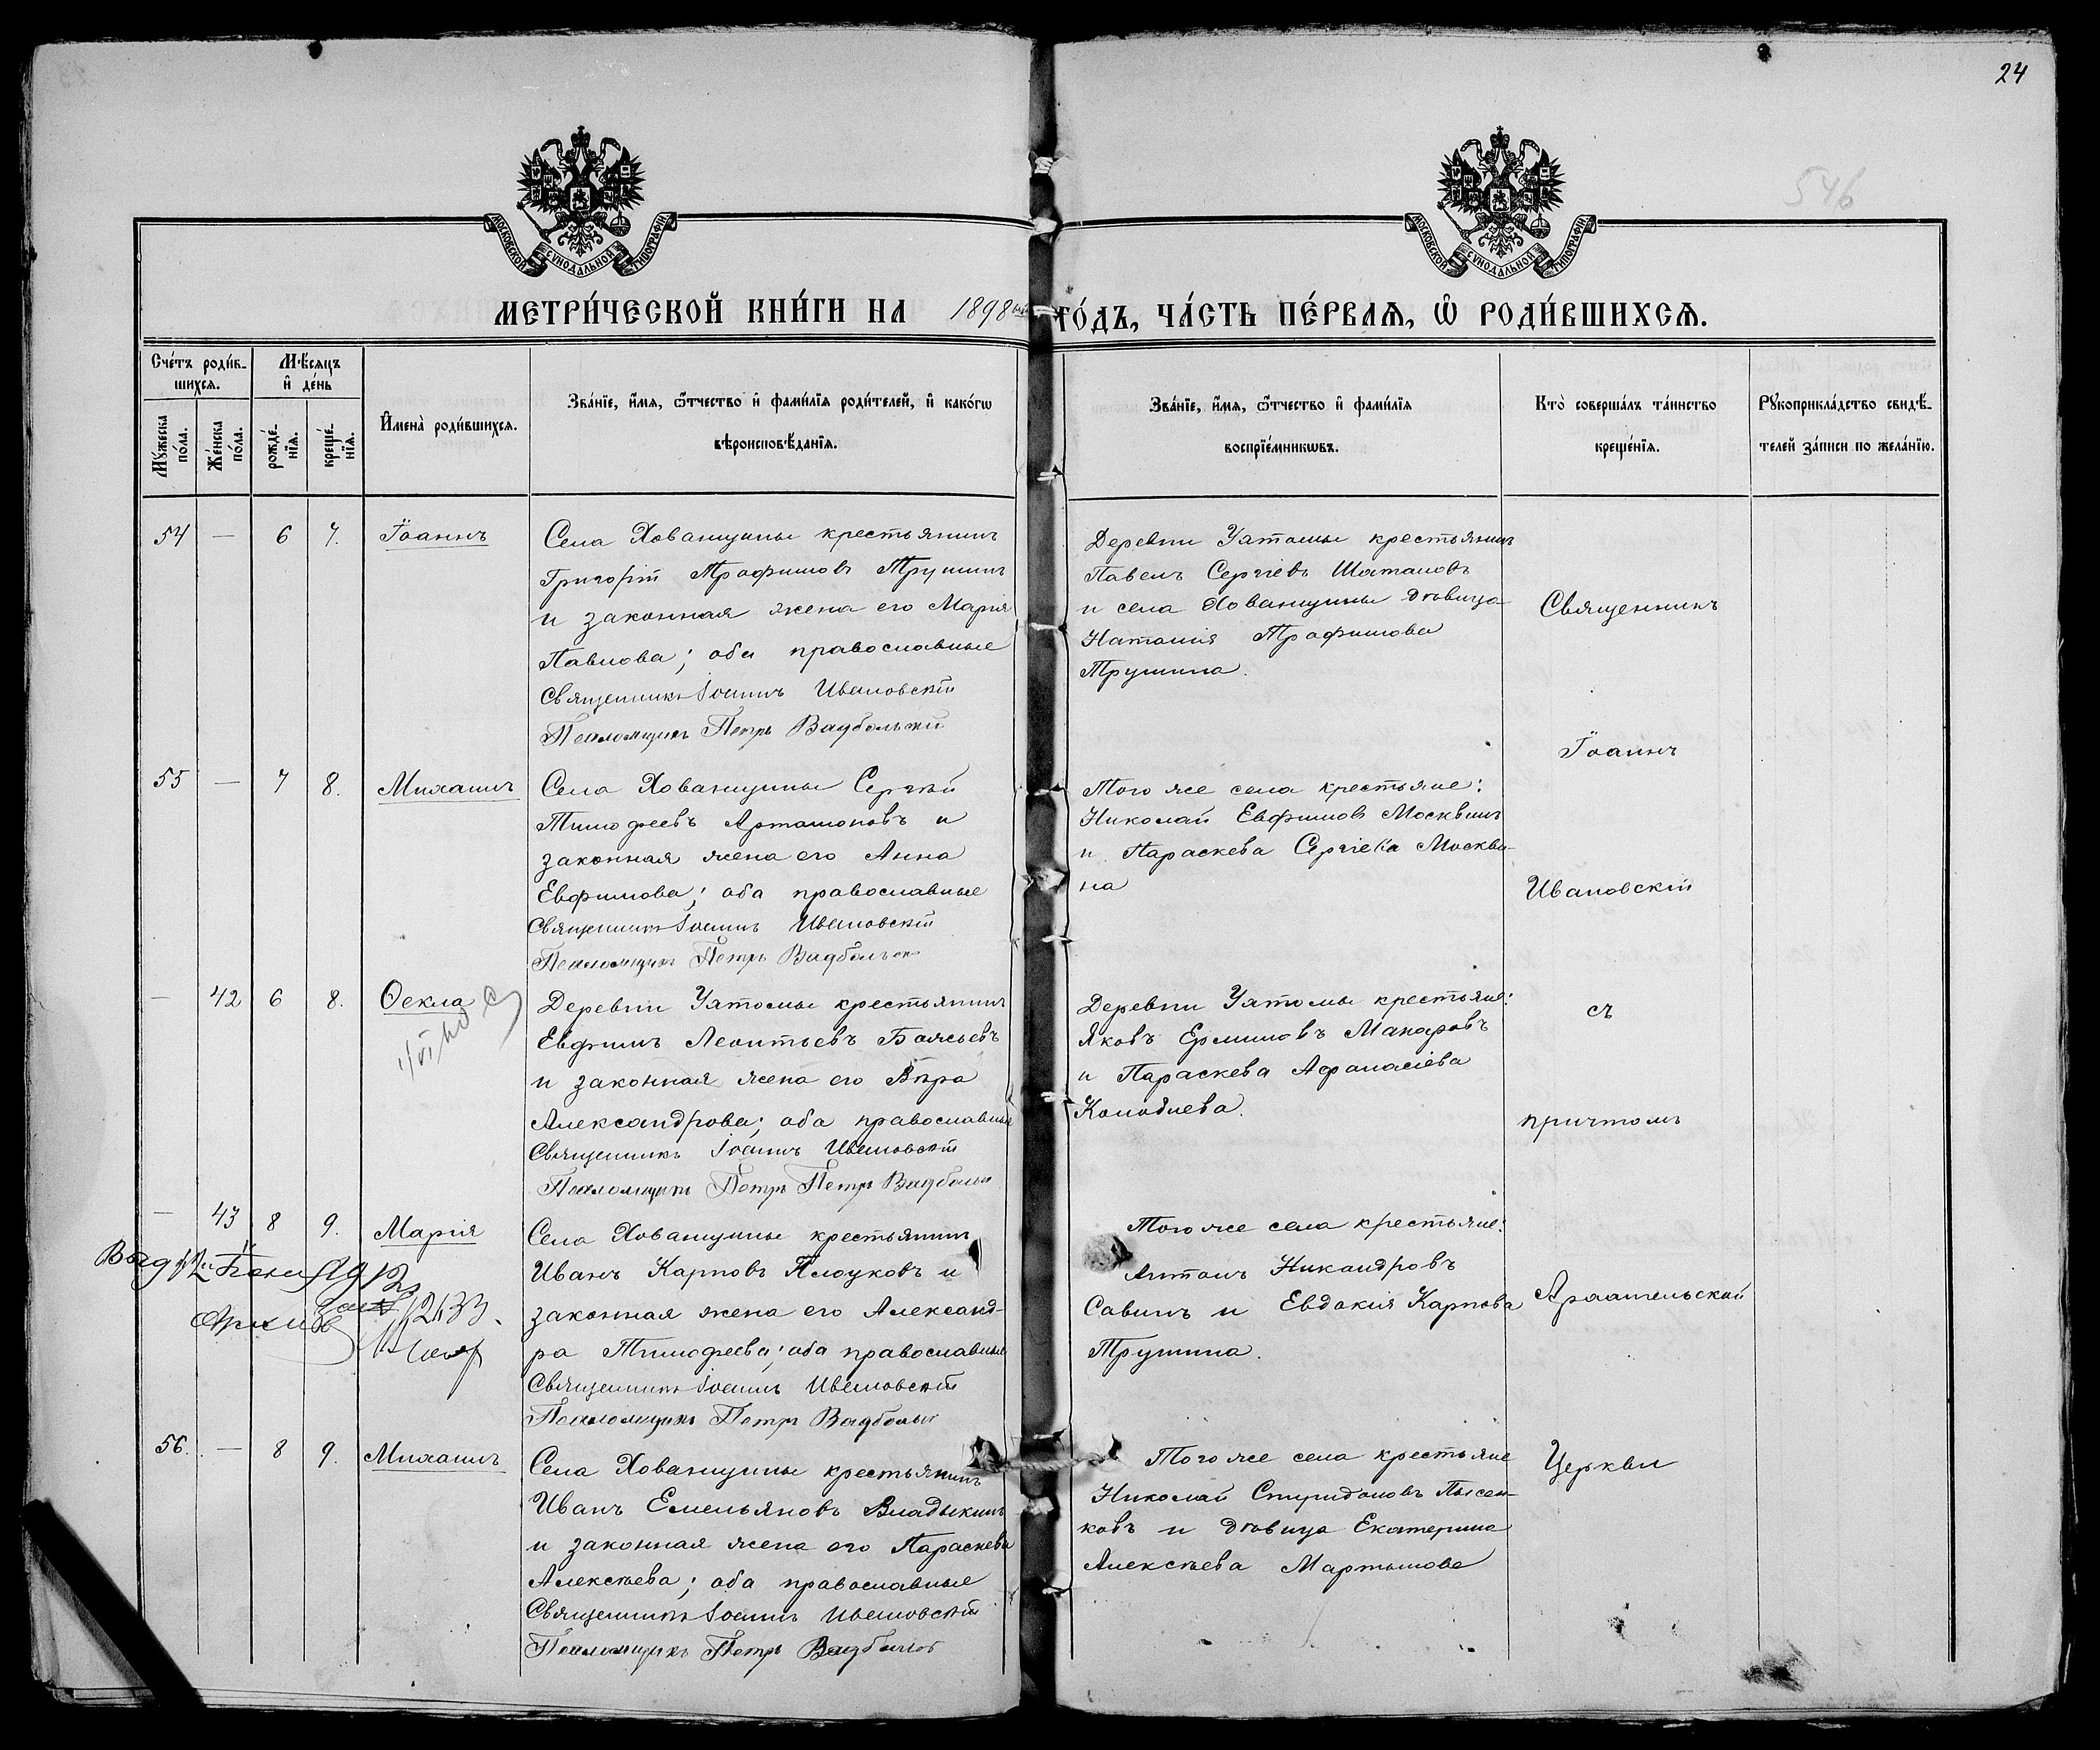 24
546
МОСКОВСКОЙ СѴНОДАЛЬНОЙ ТИПОГРАФІИ
МОСКОВСКОЙ СѴНОДАЛЬНОЙ ТИПОГРАФІИ
МЕТРИ́ЧЕСКОЙ КНИ́ГИ НА 1898 ГО́ДЪ, ЧА́СТЬ ПЕ́РВАѦ, Ѡ҆ РОДИ́ВШИХСѦ.
Сче́тъ роди́в-
шихсѧ.
Мꙋ́жеска по́ла.
Же́нска по́ла.
Мѣ́сѧцъ
и҆ де́нь
рожде́-
нїѧ.
креще́-
нїѧ.
И҆мена̀ роди́вшихсѧ.
Зва́нїе, и҆́мѧ, ѻ҆́тчество и҆ фами́лїѧ роди́телей, и҆ како́гѡ
вѣроисповѣ́данїѧ.
Зва́нїе, и҆́мѧ, ѻ҆́тчество и҆ фами́лїѧ
воспрїе́мникѡвъ.
Кто̀ соверша́лъ та́инство
креще́нїѧ.
Рꙋкоприкла́дство свидѣ́-
телей за́писи по жела́нїю.
54 — 6 7. Іоаннъ
Села Хованщины крестьянинъ
Григорій Трофимовъ Трушинъ
и законная жена его Марія
Павлова; оба православные
Священникъ Іоаннъ Ивановскій
Псаломщикъ Петръ Вадбольскій
Деревни Уятомы крестьянинъ
Павелъ Сергіевъ Шаталовъ
и села Хованщины дѣвица
Наталія Трофимова
Трушина.
Священникъ
Іоаннъ
Ивановскій
съ
причтомъ
Церкви
55 — 7 8. Михаилъ
Села Хованщины Сергѣй
Тимофеевъ Артамоновъ и
законная жена его Анна
Евфимова; оба православные
Священникъ Іоаннъ Ивановскій
Псаломщикъ Петръ Вадбольск
Того же села крестьяне:
Николай Евфимовъ Москвинъ
и Параскева Сергіева Москви-
на
— 42 6 8. Ѳекла
Деревни Уятомы крестьянинъ
Евфимъ Леонтьевъ
и законная жена его Вѣра
Александрова; оба православные
Священникъ Іоаннъ Ивановскій
Псаломщикъ Петръ Петръ Вадбольск
Деревни Уятомы крестьяне:
Яковъ Ермиловъ Макаровъ
и Параскева Афанасіева
— 43 8 9. Марія
Села Хованщины крестьянинъ
Иванъ Карповъ и
законная жена его Александ-
ра Тимофеева; оба православные
Священникъ Іоаннъ Ивановскій
Псаломщикъ Петръ Вадбольск
Того же села крестьяне:
Антонъ Никандровъ
Савинъ и Евдокія Карпова
Трушина.
56. — 8 9. Михаилъ
Села Хованщины крестьянинъ
Иванъ Емельяновъ Владыкинъ
и законная жена его Параскева
Алексѣева; оба православные
Священникъ Іоаннъ Ивановскій
Псаломщикъ Петръ Вадбольск
Того же села крестьяне
Николай Спиридоновъ Лысен-
ковъ и дѣвица Екатерина
Алексѣева Мартынова